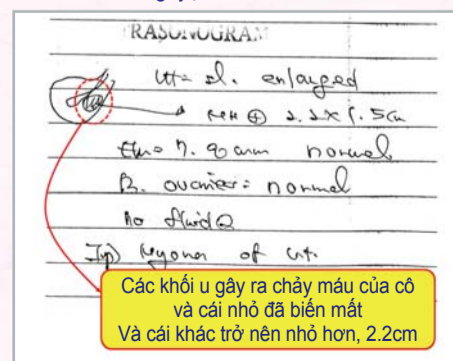 RASONOGRAM
Ut= sl. enlarged
⊕ 2.2x1.5cm
normal
B. ovaries: normal
No fluid
Imp) Myoma of ut.
Các khối u gây ra chảy máu của cô
và cái nhỏ đã biến mất
Và cái khác trở nên nhỏ hơn, 2.2cm